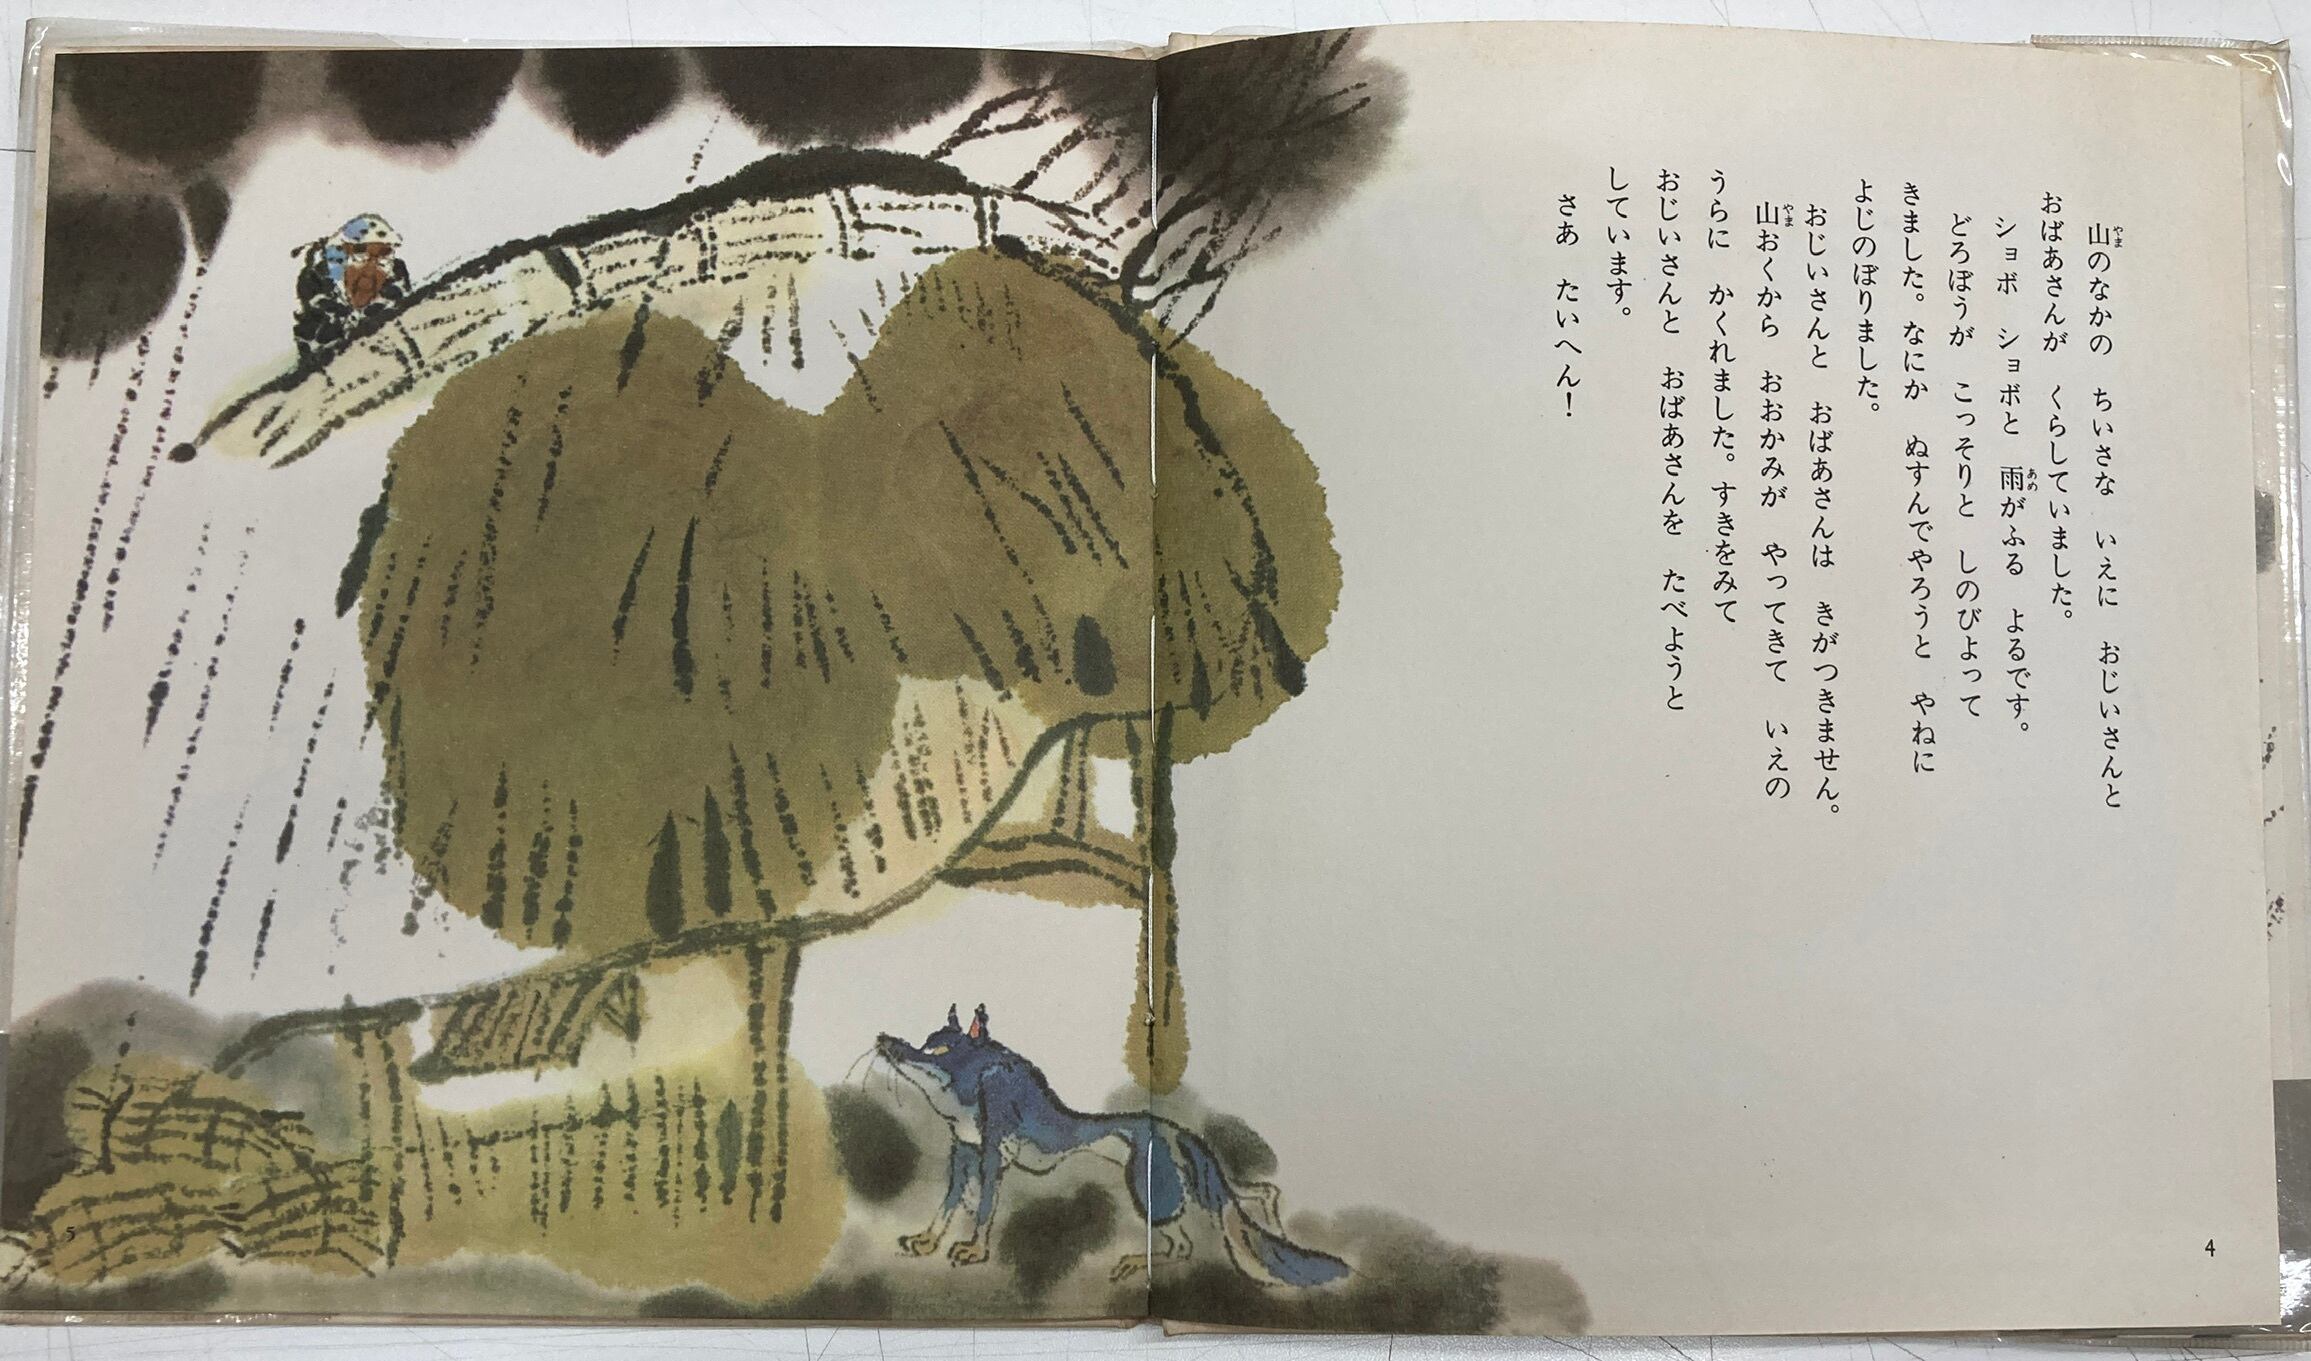 山のなかの　ちいさな　いえに　おじいさんと
おばあさんが　くらしていました。
ショボ　ショボと　雨がふる　よるです。
どろぼうが　こっそりと　しのびよって
きました。なにか　ぬすんでやろうと　やねに
よじのぼりました。
おじいさんと　おばあさんは　きがつきません。
山おくから　おおかみが　やってきて　いえの
うらに　かくれました。すきをみて
おじいさんと　おばあさんを　たべようと
しています。
さあ　たいへん！
4
5